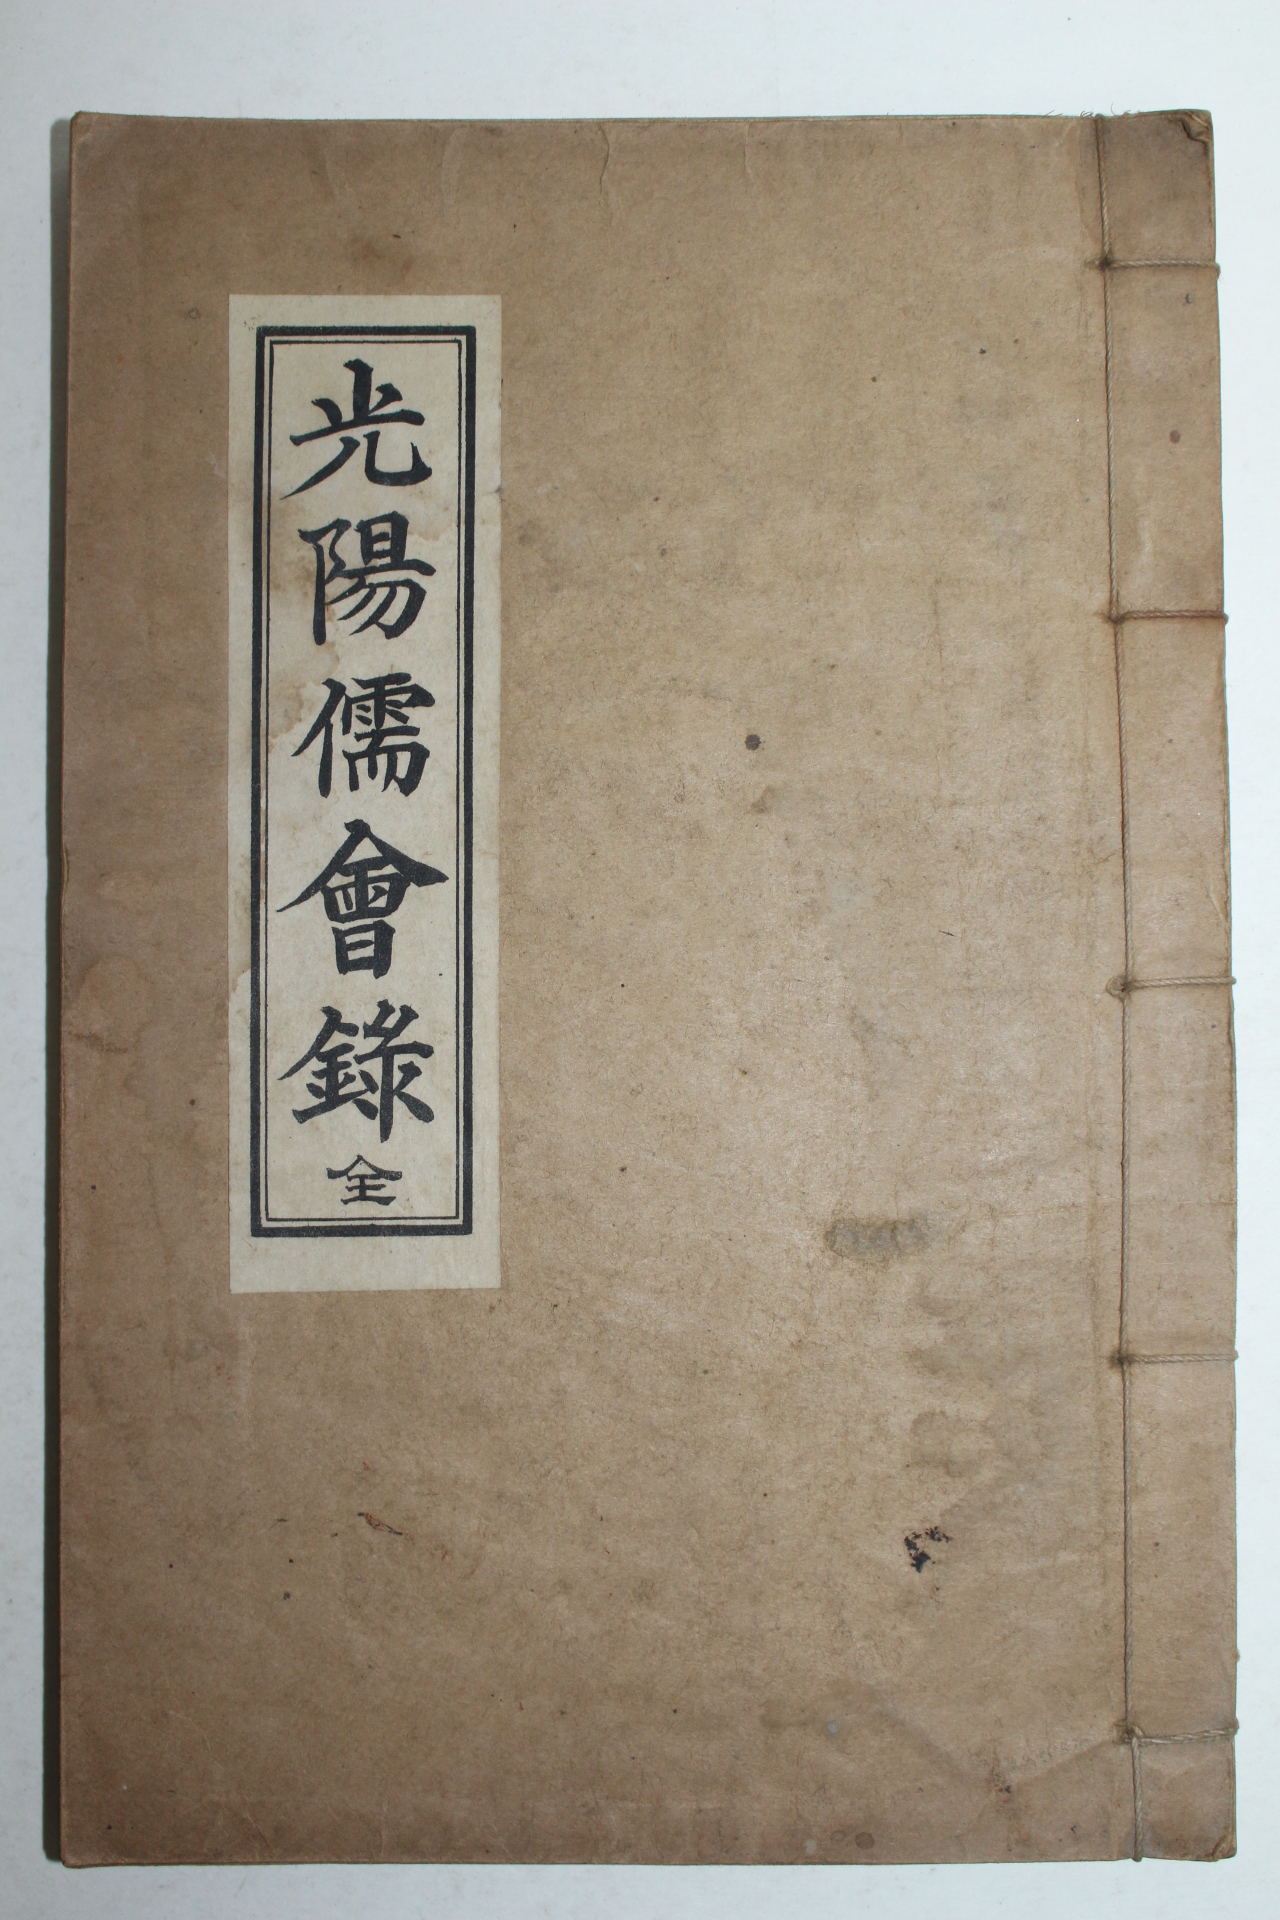 光陽儒會錄 全